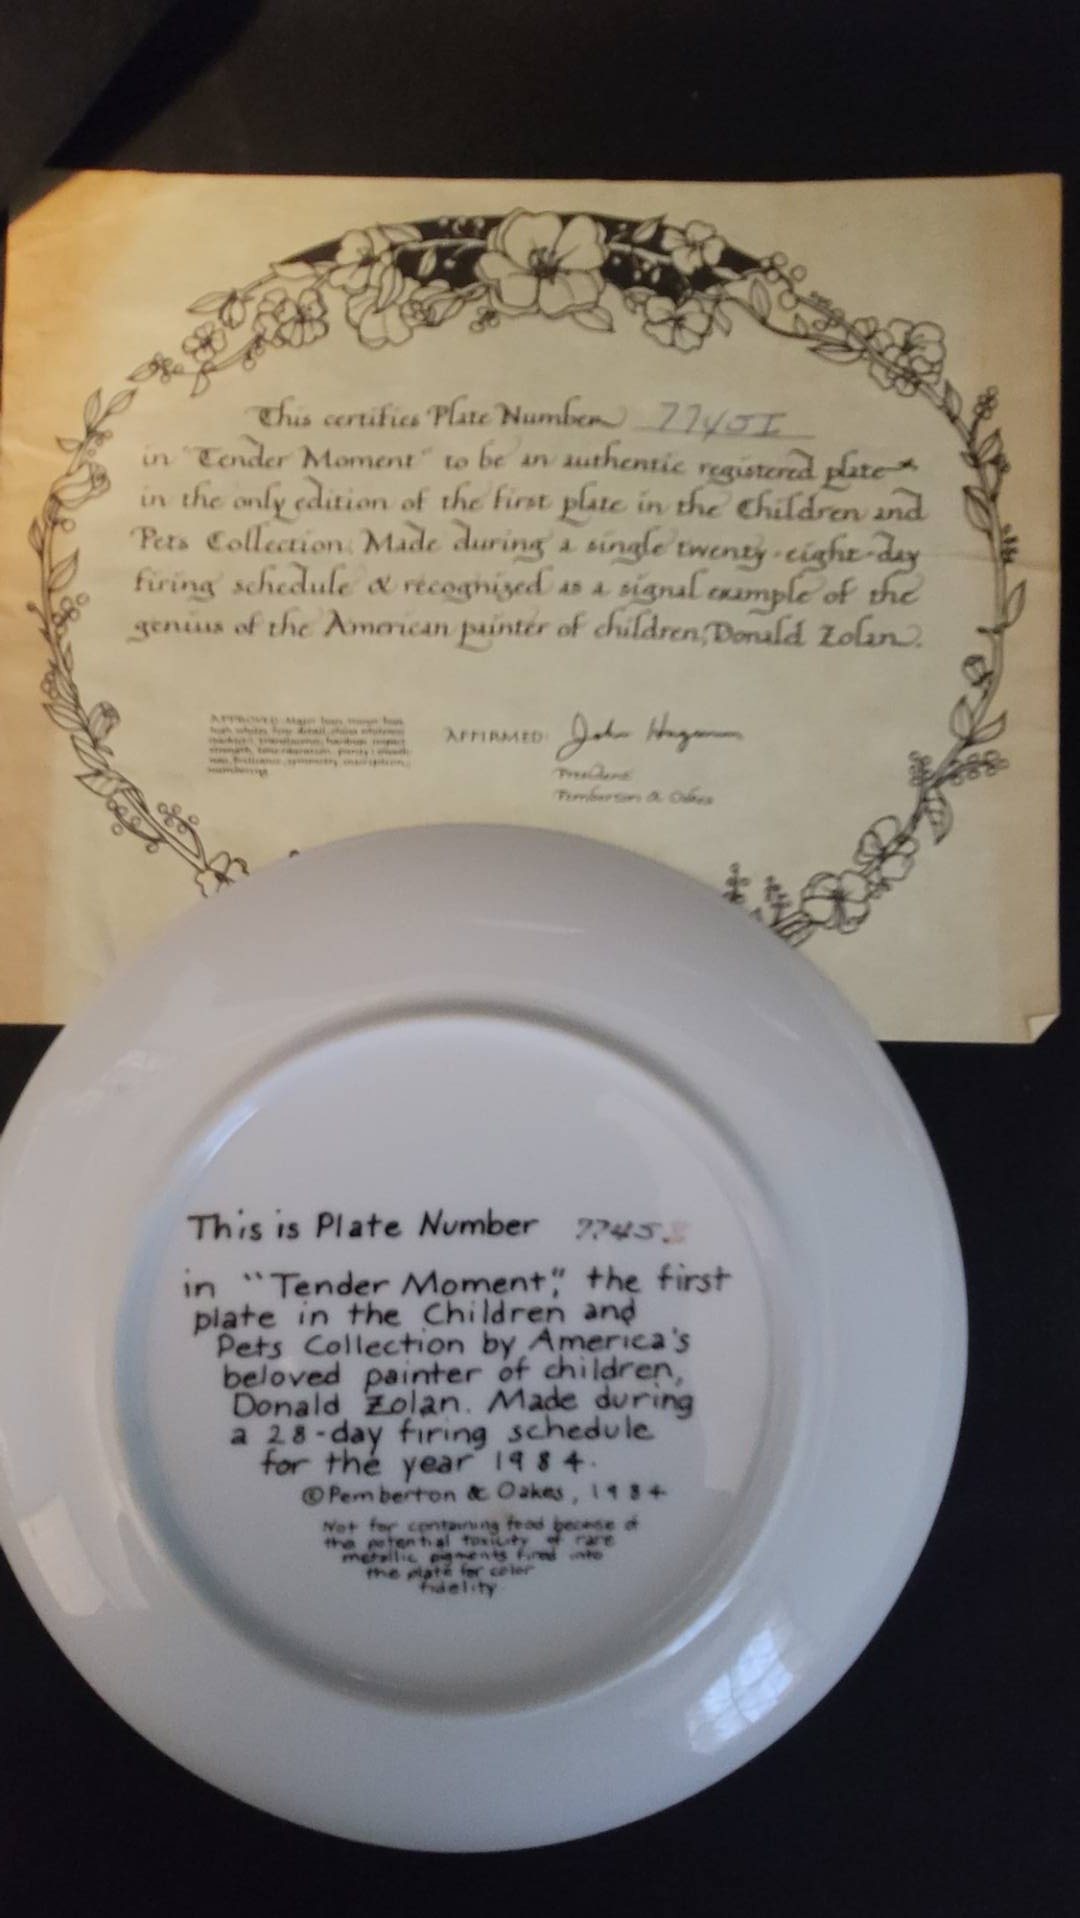 This certifies Plate Number 7745I
in "Tender Moment" to be an authentic registered plate
in the only edition of the first plate in the Children and
Pets Collection. Made during a single twenty-eight-day
firing schedule & recognized as a signal example of the
genius of the American painter of children, Donald Zolan.
APPROVED: Major
AFFIRMED: John
President
Pemberton & Oakes
This is Plate Number 7745
in "Tender Moment," the first
plate in the Children and
Pets Collection by America's
beloved painter of children,
Donald Zolan. Made during
a 28-day firing schedule
for the year 1984.
©Pemberton & Oakes, 1984
Not for containing food because of
the potential toxicity of rare
metallic pigments fired into
the plate for color
fidelity.